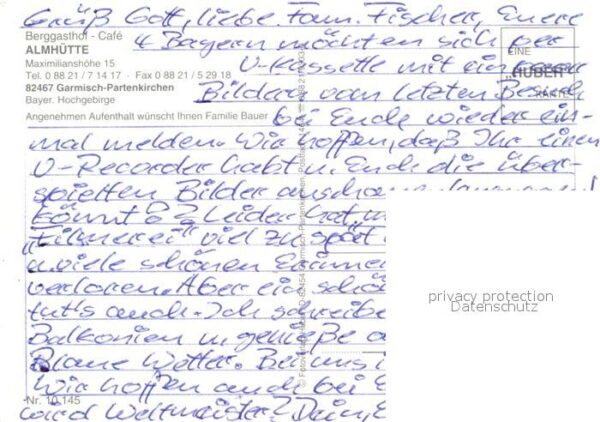 Grüß Gott, liebe Fam. Fischer, Euere
Berggasthof - Café
ALMHÜTTE
4 Bayern möchten sich per
Maximilianshöhe 15
V-Kassette mit ein paar
EINE
HUBER
KARTE
Tel. 0 88 21 / 7 14 17 · Fax 0 88 21 / 5 29 18
82467 Garmisch-Partenkirchen
Bildern vom letzten Besuch
Bayer. Hochgebirge
bei Euch wieder ein-
Angenehmen Aufenthalt wünscht Ihnen Familie Bauer
mal melden. Wir hoffen, daß Ihr einen
V-Recorder habt u. Euch die über-
spielten Bilder anschauen
könnt?? Leider hat
"Filmerei" viel zu spät
u. viele schönen
verloren. Aber ein
tut's auch. Ich schreibe
privacy protection
Datenschutz
Balkonien u. genieße
Blaue Wetter. Bei uns
Wir hoffen auch bei
Nr. 10.145
wird Weltmeister? Dein,